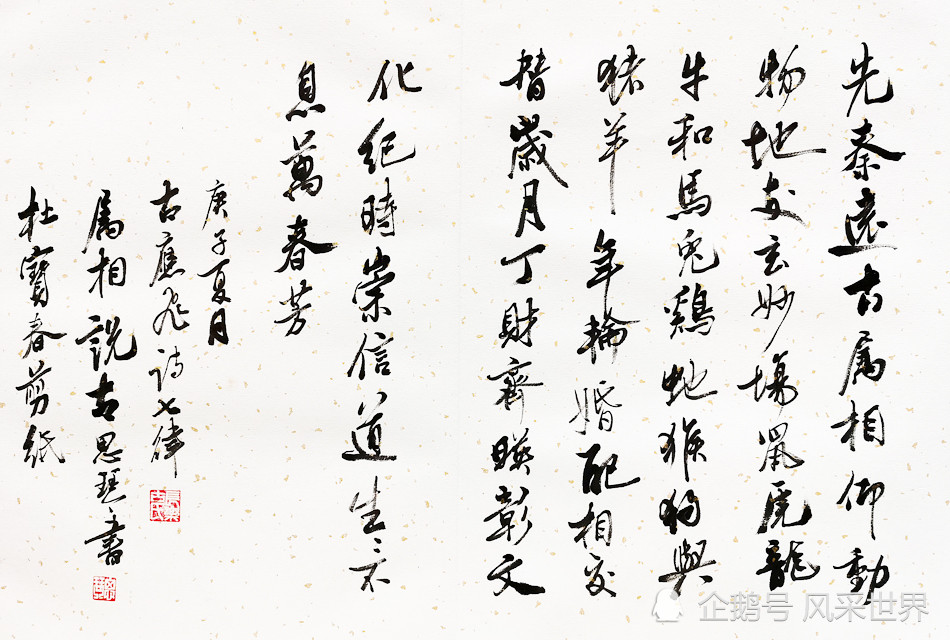 先秦遠古属相仰動
物地支玄妙場鼠虎龍
牛和馬兔鷄蛇猴狗與
猪羊年輪婚配相交
替歲月丁財齊映彰文
化紀時崇信道生〻不
息萬春芳
庚子夏月
古應飛诗七律
属相說古思珽書
杜寶春剪紙
企鹅号 风采世界